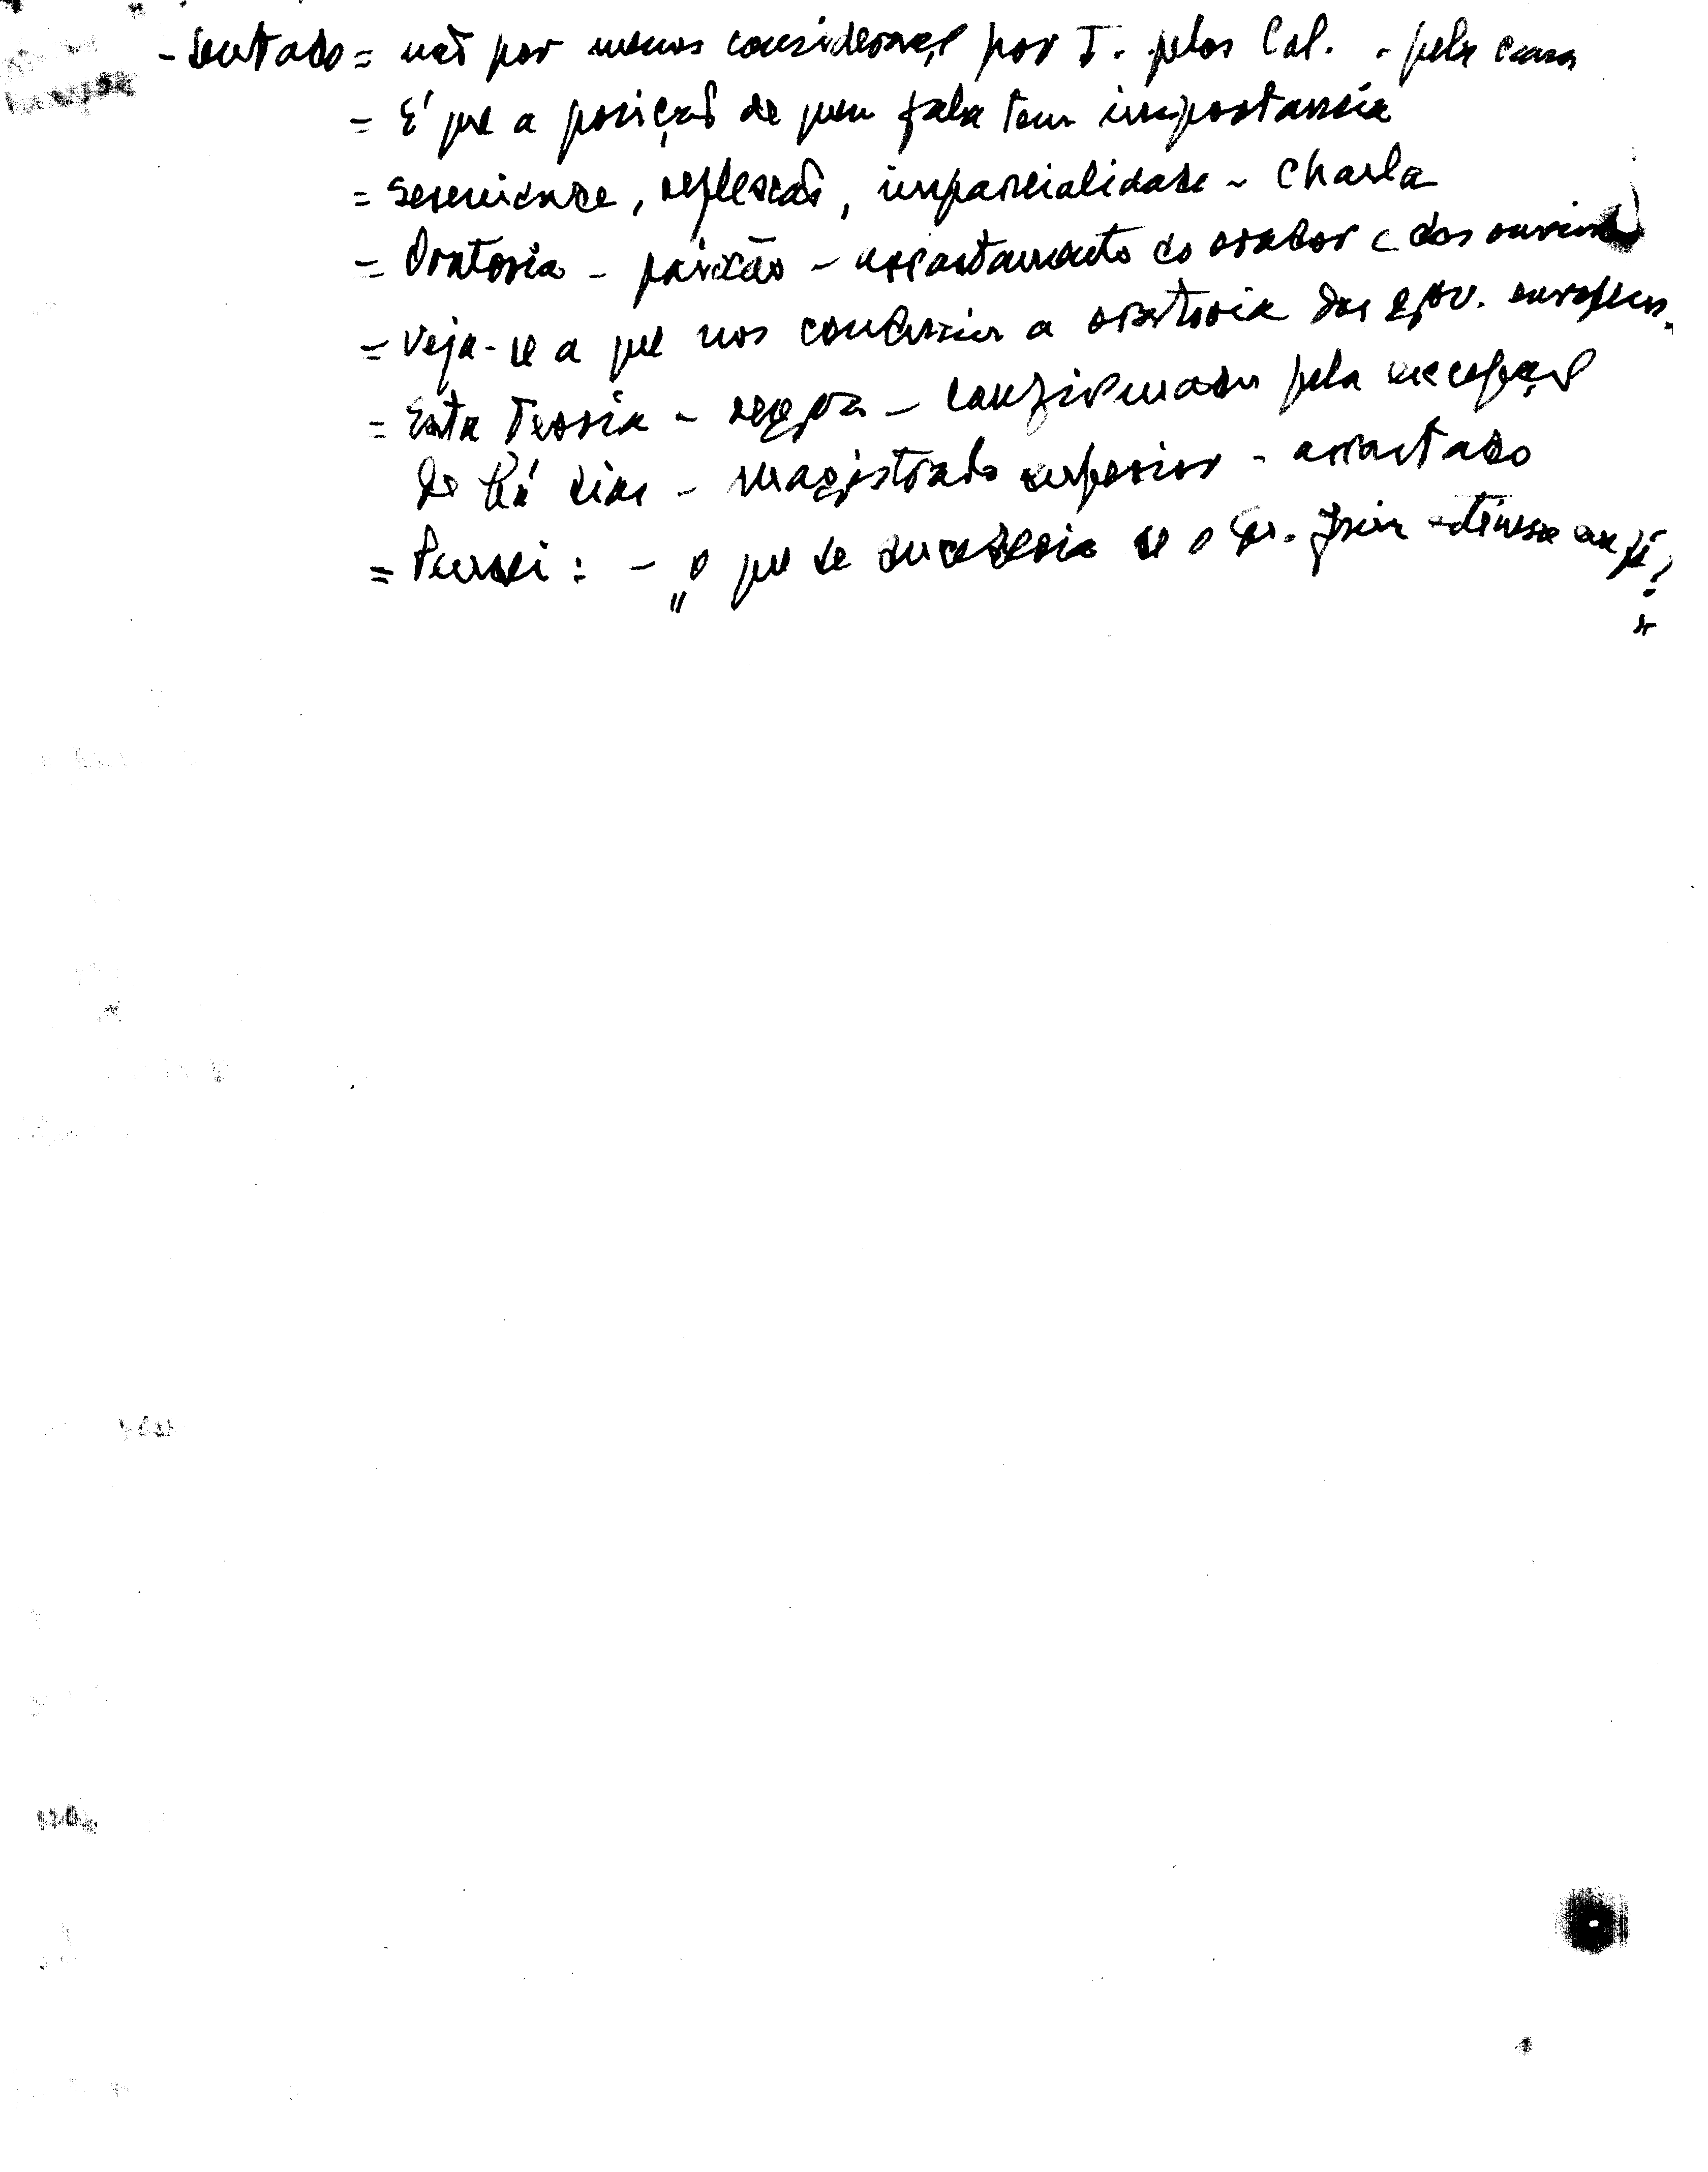 - Sentado = não por menos consideração por T. pelos Col. - pela casa
= É que a posição de quem fala tem importancia
= Serenidade, reflexão, imparcialidade - Charla
= Oratoria - paixão - arrastamento do orador e dos ouvintes
= Veja-se a que nos conduziu a oratoria dos gov. europeus.
= Esta Teoria - regra - confirmada pela excepção
de há dias - magistrado superior - arrastado
= Pensei: - "o que se sucederia se o Sr. Juiz estivesse em pé?